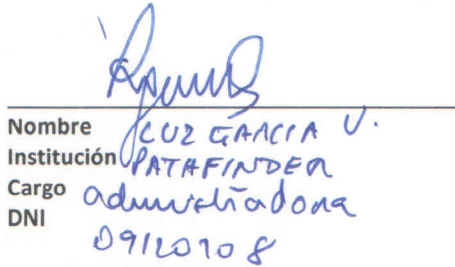 Nombre LUZ GARCIA V.
Institución PATHFINDER
Cargo administradora
DNI 09120708